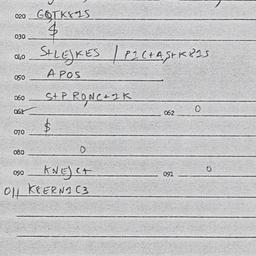 020 GQTK8IS
030 $
040 S+LEJKES / PIC+AS+K8IS
050 APOS
060 S+PRONC+IK
061 062 0
070 $
080 0
090 KNEJC+ 091 0
011 KEERNIC3